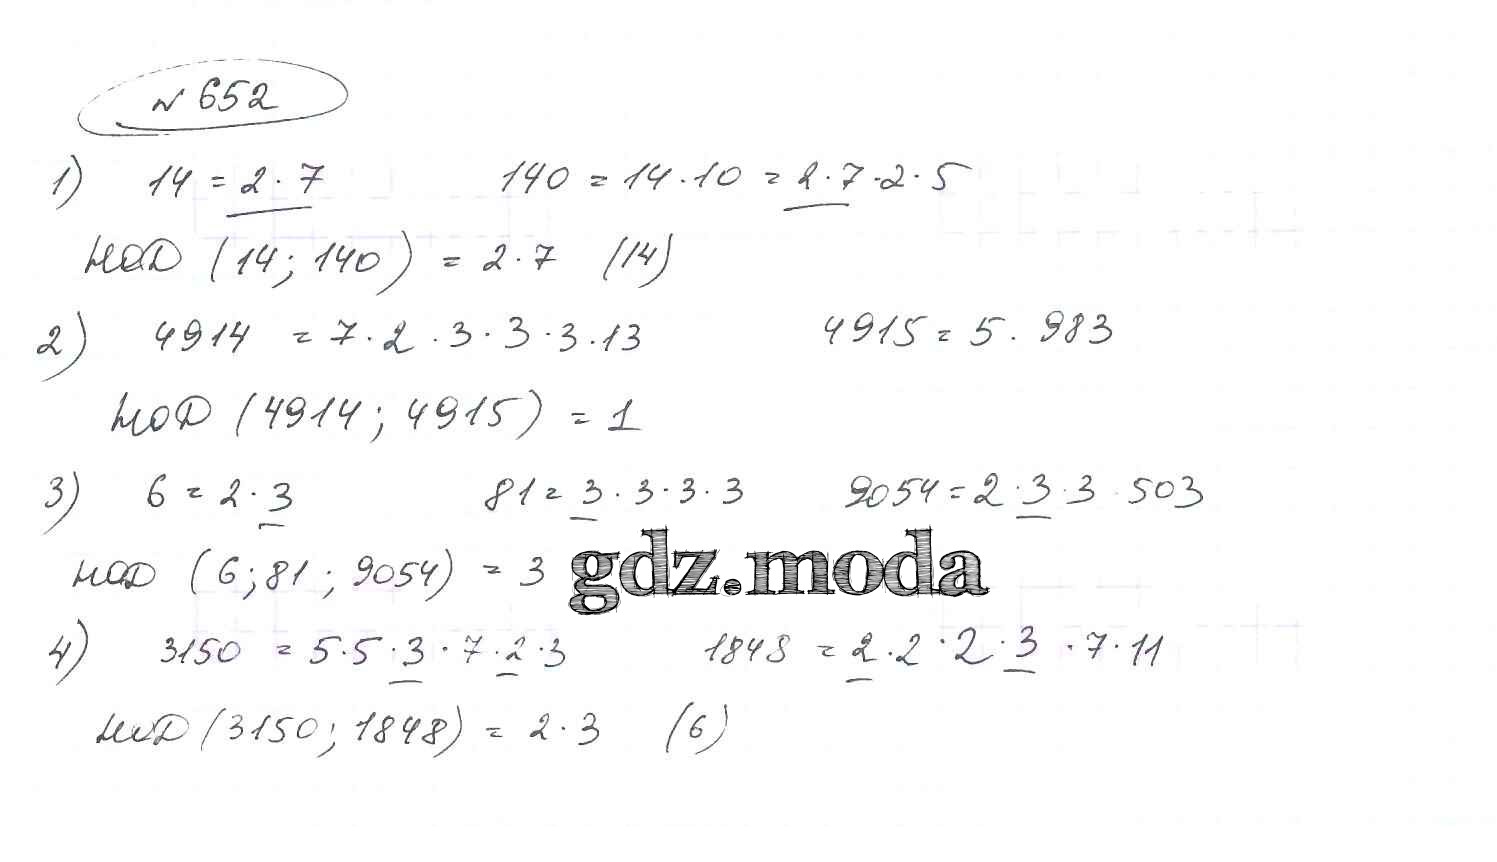 № 652
1) 14 = 2 · 7 140 = 14 · 10 = 2 · 7 · 2 · 5
НОД (14; 140) = 2 · 7 (14)
2) 4914 = 7 · 2 · 3 · 3 · 3 · 13 4915 = 5 · 983
НОД (4914; 4915) = 1
3) 6 = 2 · 3 81 = 3 · 3 · 3 · 3 9054 = 2 · 3 · 3 · 503
НОД (6; 81; 9054) = 3
gdz.moda
4) 3150 = 5 · 5 · 3 · 7 · 2 · 3 1848 = 2 · 2 · 2 · 3 · 7 · 11
НОД (3150; 1848) = 2 · 3 (6)